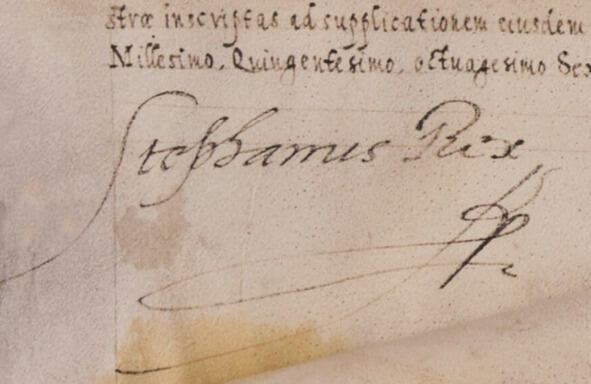 stræ inscriptas ad supplicationem eiusdem
Millesimo, Quingentesimo, octuagesimo Sex
Stephanus Rex